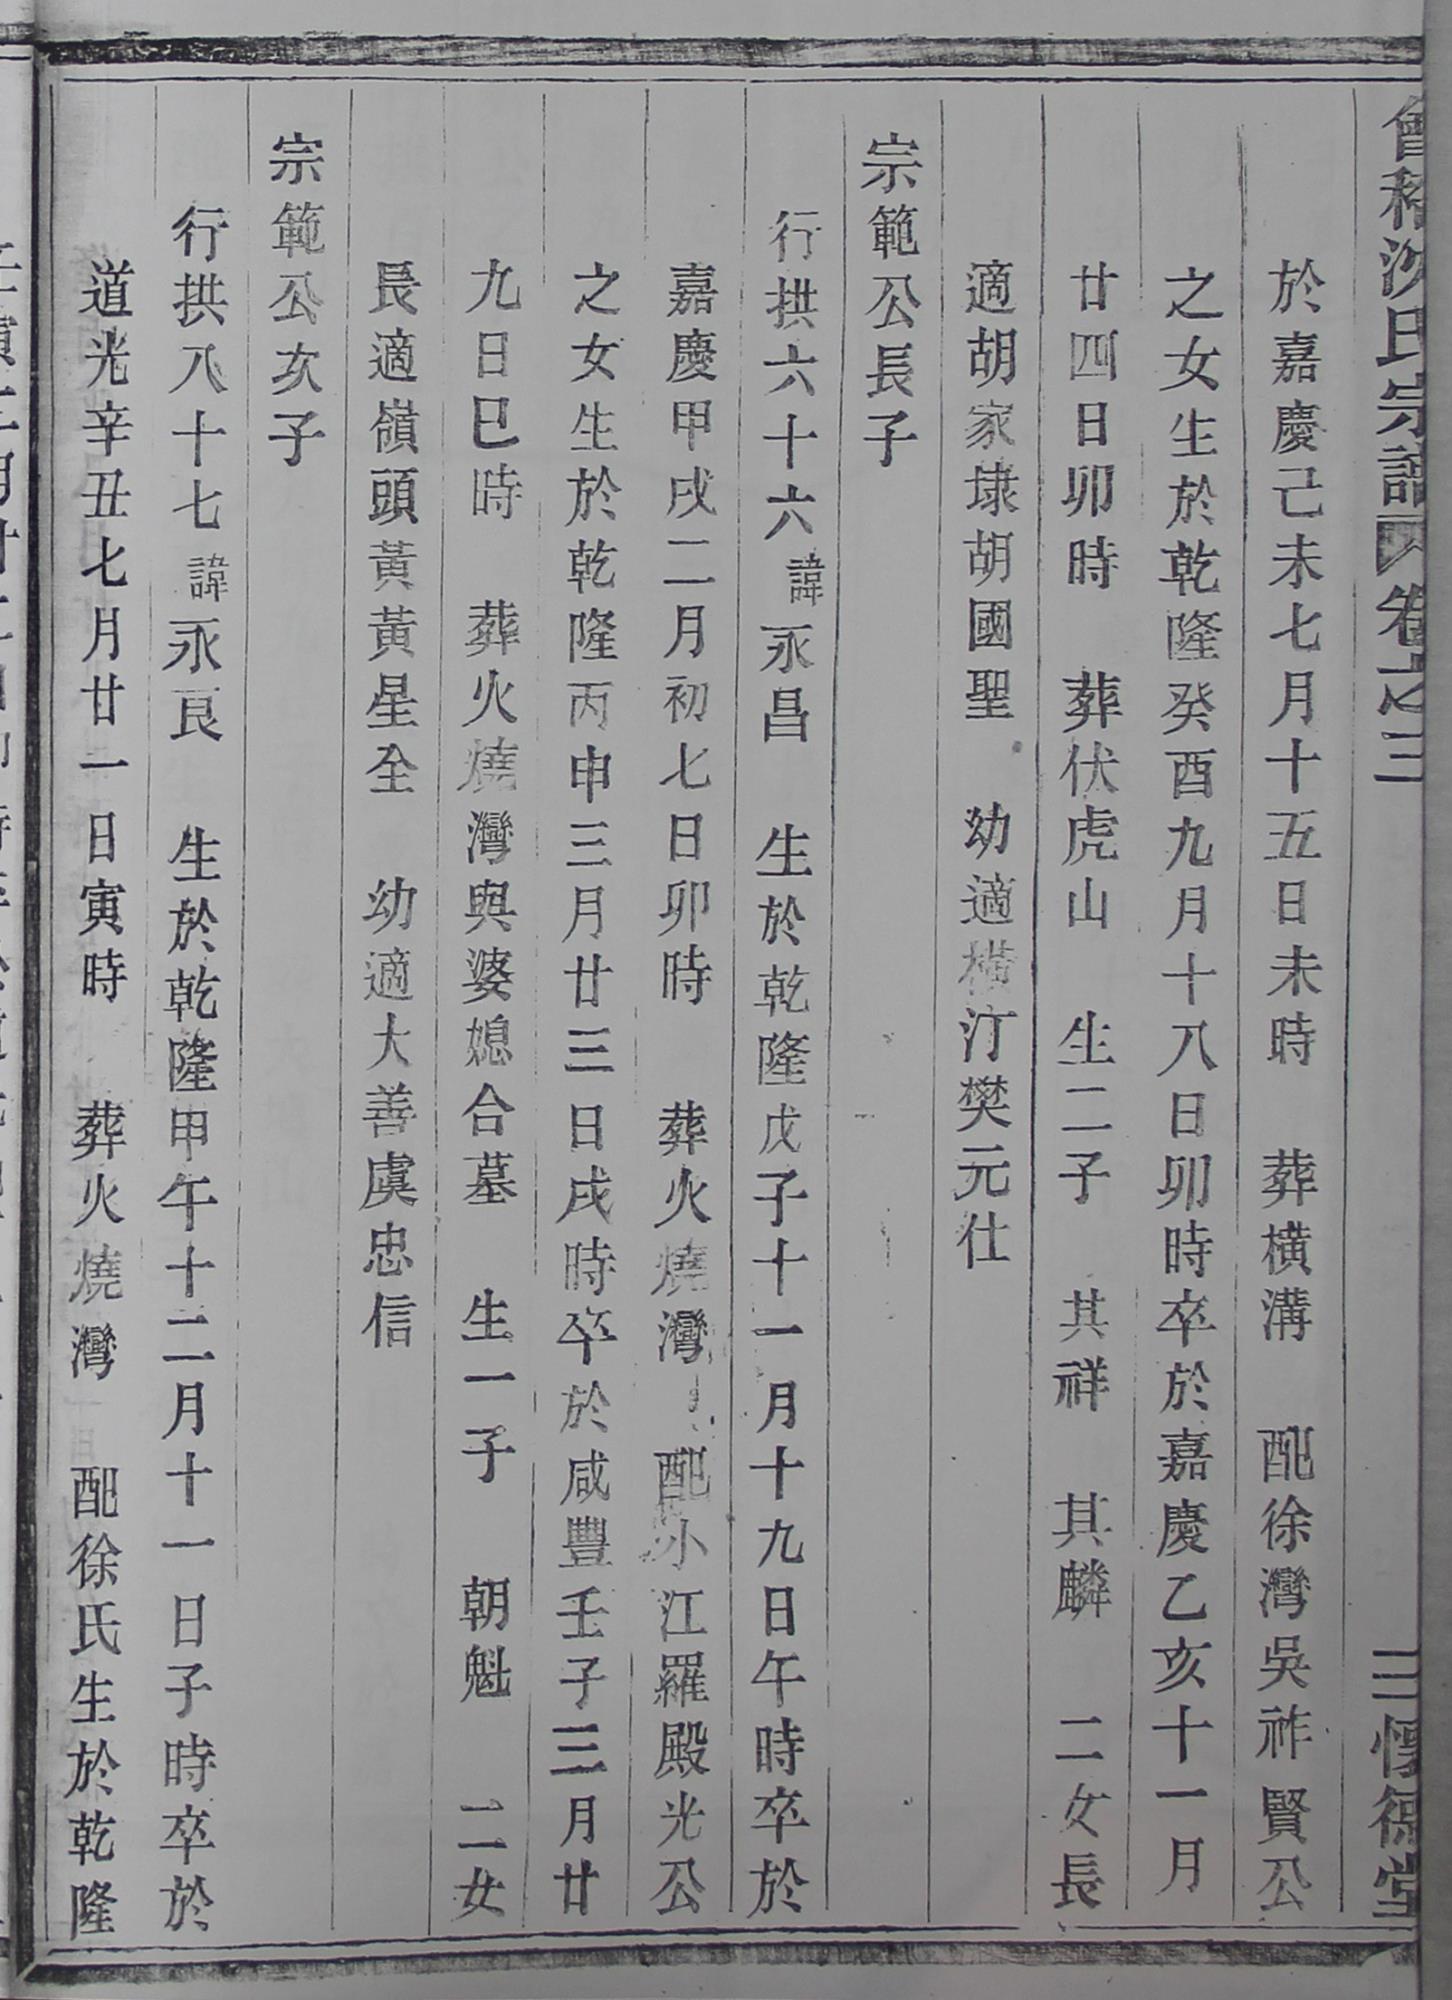 會稽沈氏宗譜 卷之三 三 懷德堂
於嘉慶己未七月十五日未時 葬橫溝 配徐灣吳祚賢公
之女生於乾隆癸酉九月十八日卯時卒於嘉慶乙亥十一月
廿四日卯時 葬伏虎山 生二子 其祥 其麟 二女長
適胡家埭胡國聖 幼適橫汀樊元仕
宗範公長子
行拱六十六諱永昌 生於乾隆戊子十一月十九日午時卒於
嘉慶甲戌二月初七日卯時 葬火燒灣 配小江羅殿光公
之女生於乾隆丙申三月廿三日戌時卒於咸豐壬子三月廿
九日巳時 葬火燒灣與婆媳合墓 生一子 朝魁 二女
長適嶺頭黃黃星全 幼適大善虞忠信
宗範公次子
行拱八十七諱永良 生於乾隆甲午十二月十一日子時卒於
道光辛丑七月廿一日寅時 葬火燒灣 配徐氏生於乾隆